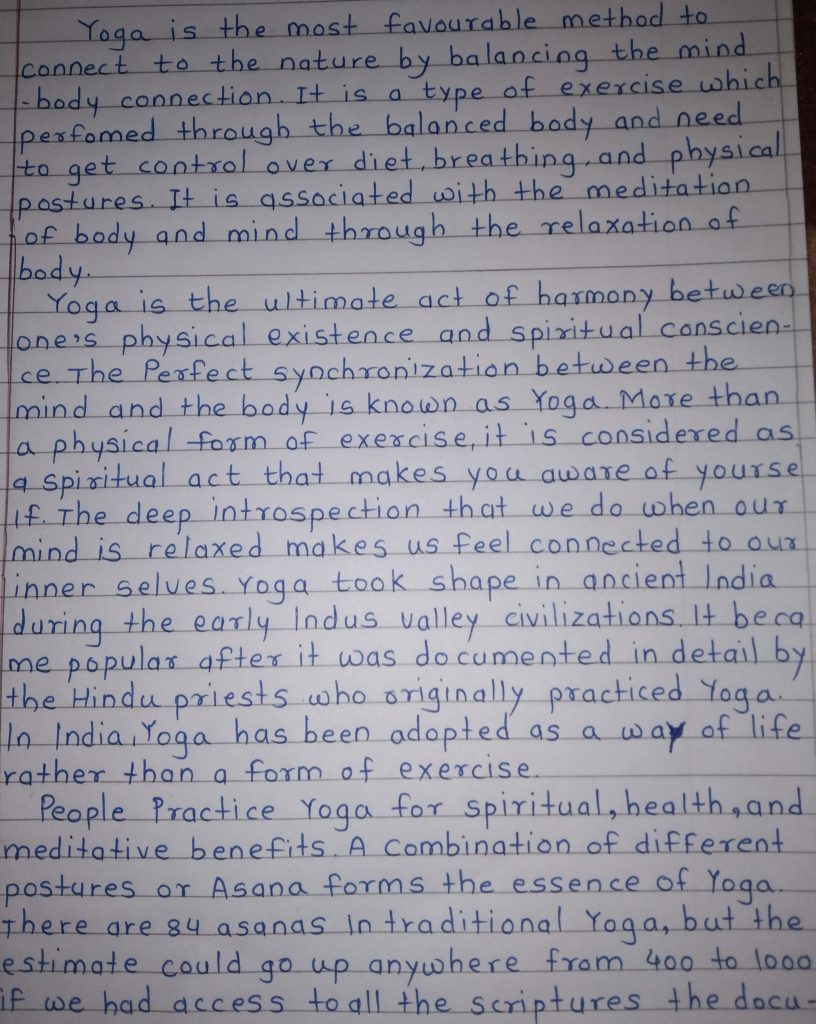 Yoga is the most favourable method to
connect to the nature by balancing the mind
-body connection. It is a type of exercise which
perfomed through the balanced body and need
to get control over diet, breathing, and physical
postures. It is associated with the meditation
of body and mind through the relaxation of
body.
Yoga is the ultimate act of harmony between
one's physical existence and spiritual conscien-
ce. The Perfect synchronization between the
mind and the body is known as Yoga. More than
a physical form of exercise, it is considered as
a spiritual act that makes you aware of yourse
lf. The deep introspection that we do when our
mind is relaxed makes us feel connected to our
inner selves. Yoga took shape in ancient India
during the early Indus valley civilizations. It beca
me popular after it was documented in detail by
the Hindu priests who originally practiced Yoga.
In India, Yoga has been adopted as a way of life
rather than a form of exercise.
People Practice Yoga for spiritual, health, and
meditative benefits. A Combination of different
postures or Asana forms the essence of Yoga.
There are 84 asanas In traditional Yoga, but the
estimate could go up anywhere from 400 to 1000
if we had access to all the scriptures the docu-